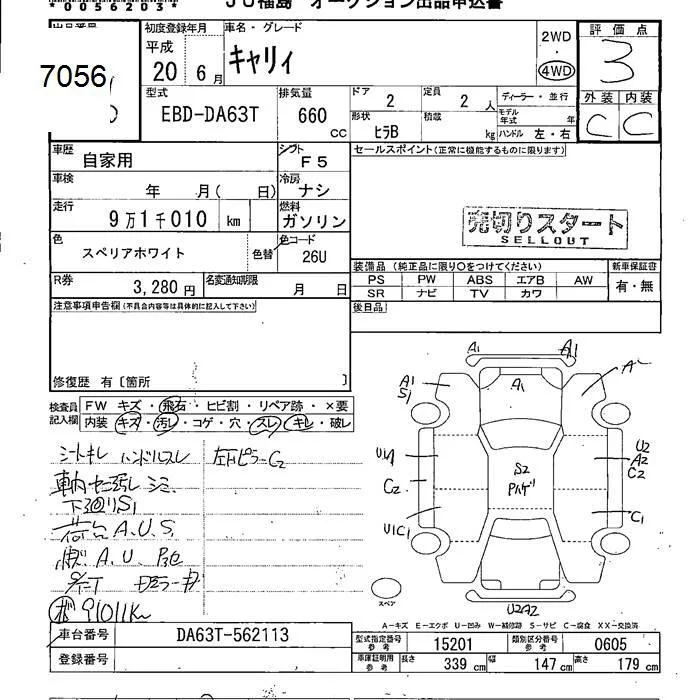 *0056203*
JU福島 オークション出品申込書
出品番号
7056
初度登録年月
平成
20 6月
車名・グレード
キャリィ
2WD
・
4WD
評価点
3
外装 内装
C C
型式
EBD-DA63T
排気量
660 CC
ドア 2
定員 2人
ディーラー・並行
形状 ヒラB
積載 kg
モデル年式 年
ハンドル 左・右
車歴
自家用
シフト
F5
セールスポイント(正常に機能するものに限ります)
車検
年 月( 日)
冷房
ナシ
走行
9万1千010 km
燃料
ガソリン
売切りスタート
SELLOUT
色
スペリアホワイト
色替
色コード
26U
装備品 (純正品に限り○をつけてください)
新車保証書
PS PW ABS エアB AW
有・無
SR ナビ TV カワ
R券
3,280円
名変通知期限
月 日
後日品
注意事項申告欄(不具合内容等は具体的に記入して下さい)
修復歴 有〔箇所 〕
検査員記入欄
FW キズ・飛石・ヒビ割・リペア跡・×要
内装 キズ・汚レ・コゲ・穴・スレ・キレ・破レ
シートキレ ハンドルスレ 左下ピラーC2
車内
シミ
下廻りS1
荷台A.U.S.
A.U
91011Km
A1 A1
A1
S1
A1
U1
C2
U1C1
S2
U2
A2
C2
C1
U2A2
スペア
A-キズ E-エクボ U-凹み W-補修跡 S-サビ C-腐食 XX-交換済
車台番号 DA63T-562113
登録番号
型式指定番号 参考 15201
類別区分番号 参考 0605
車庫証明用 参考 長さ 339cm 幅 147cm 高さ 179cm